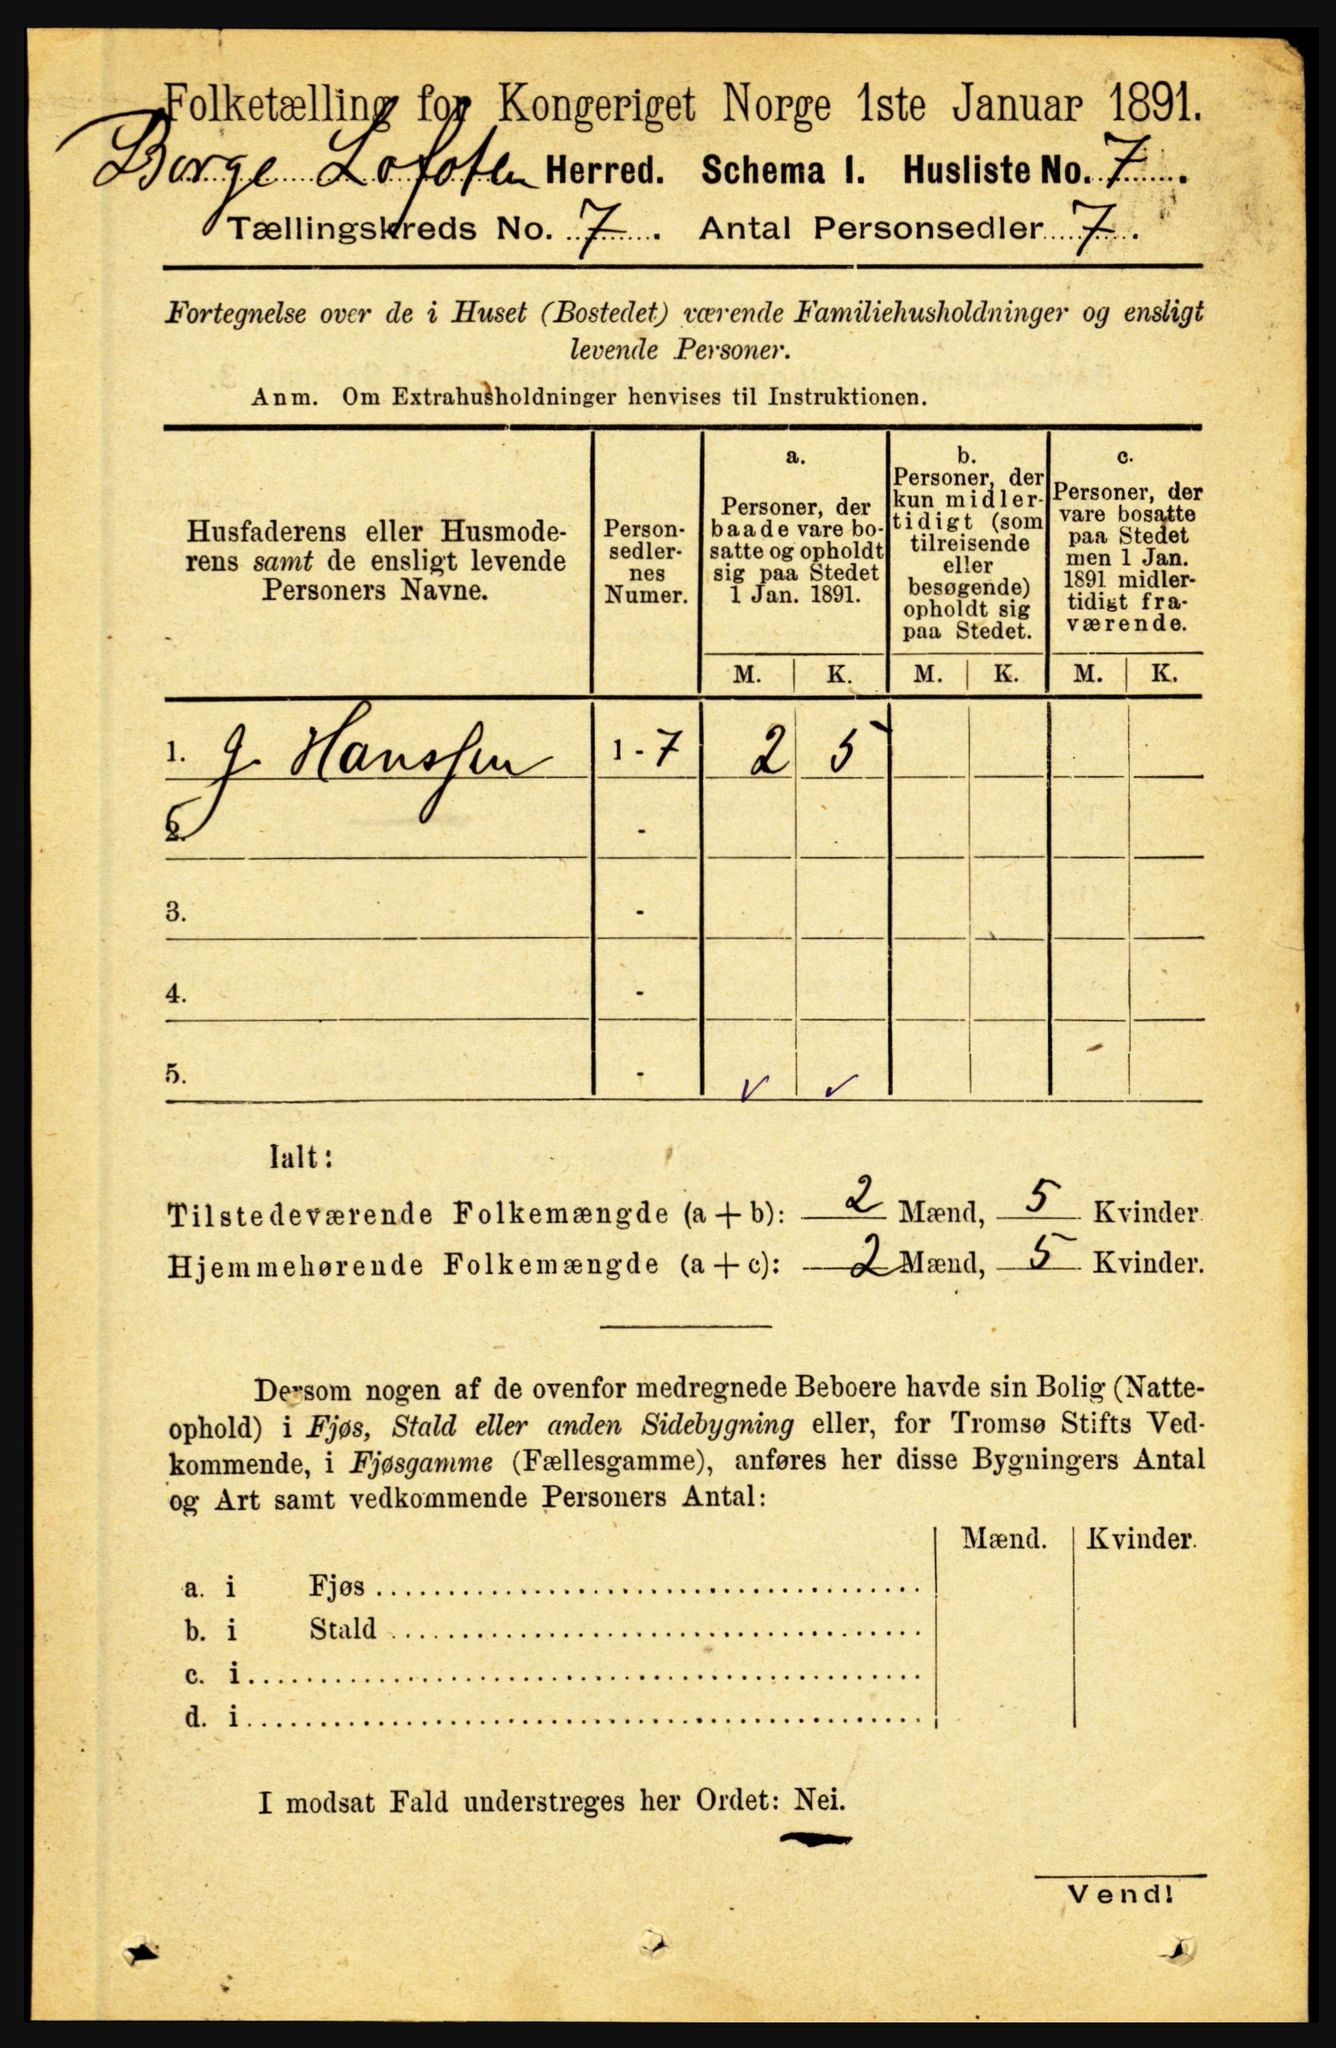 Folketælling for Kongeriget Norge 1ste Januar 1891.
Borge Lofoten Herred. Schema 1. Husliste No. 7.
Tællingskreds No. 7. Antal Personsedler 7.
Fortegnelse over de i Huset (Bostedet) værende Familiehusholdninger og ensligt
levende Personer.
Anm. Om Extrahusholdninger henvises til Instruktionen.
Husfaderens eller Husmode-
rens samt de ensligt levende
Personers Navne.
Person-
sedler-
nes
Numer.
a.
Personer, der
baade vare bo-
satte og opholdt
sig paa Stedet
1 Jan. 1891.
b.
Personer, der
kun midler-
tidigt (som
tilreisende
eller
besøgende)
opholdt sig
paa Stedet.
c.
Personer, der
vare bosatte
paa Stedet
men 1 Jan.
1891 midler-
tidigt fra-
værende.
M. K. M. K. M. K.
1. J. Hanssen 1 - 7 2 5
2. -
3. -
4. -
5. - ✓ ✓
Ialt:
Tilstedeværende Folkemængde (a + b): 2 Mænd, 5 Kvinder.
Hjemmehørende Folkemængde (a + c): 2 Mænd, 5 Kvinder.
Dersom nogen af de ovenfor medregnede Beboere havde sin Bolig (Natte-
ophold) i Fjøs, Stald eller anden Sidebygning eller, for Tromsø Stifts Ved-
kommende, i Fjøsgamme (Fællesgamme), anføres her disse Bygningers Antal
og Art samt vedkommende Personers Antal:
Mænd. Kvinder.
a. i Fjøs
b. i Stald
c. i
d. i
I modsat Fald understreges her Ordet: Nei.
Vend!